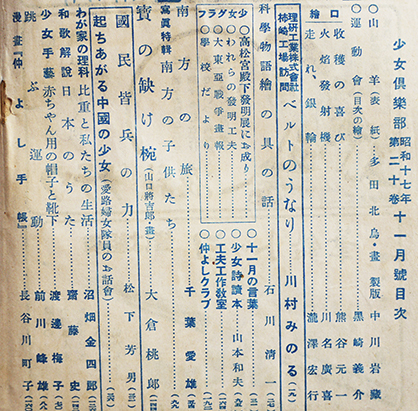 少女倶樂部 昭和十七年 第二十卷 十一月號目次
○山羊(表紙)……多田北烏・畫 製版 中川岩藏
○運動會(目次の繪)……黒崎義介
口繪
收穫の喜び……熊谷元一
火焰發射機……川名廣喜
走れ、銀輪……瀧澤宏行
理研工業株式會社柿崎工場訪問 ベルトのうなり……川村みのる
科學物語 繪の具の話……石川清一
少女グラフ
○高松宮殿下發明展にお成り
○われらの發明工夫
○大東亞戰爭畫報
○學校だより
○十一月の言葉
○少女詩讀本……山本和夫
○工夫工作教室
○仲よしクラブ
南方の旅……千葉愛雄
寫眞特輯 南方の子供たち
寶の缺け椀(山口將吉郎・畫)……大倉桃郎
國民皆兵の力……松下芳男
起ちあがる中國の少女(愛路婦女隊員のお話會)
わが家の理科 比重と私たちの生活……沼畑金四郎
和歌解説 日本のうた……齋藤史
少女手藝 赤ちやん用の帽子と靴下……渡邊梅子
跳ぶ運動……前川峰雄
漫畫『仲よし手帳』……長谷川町子